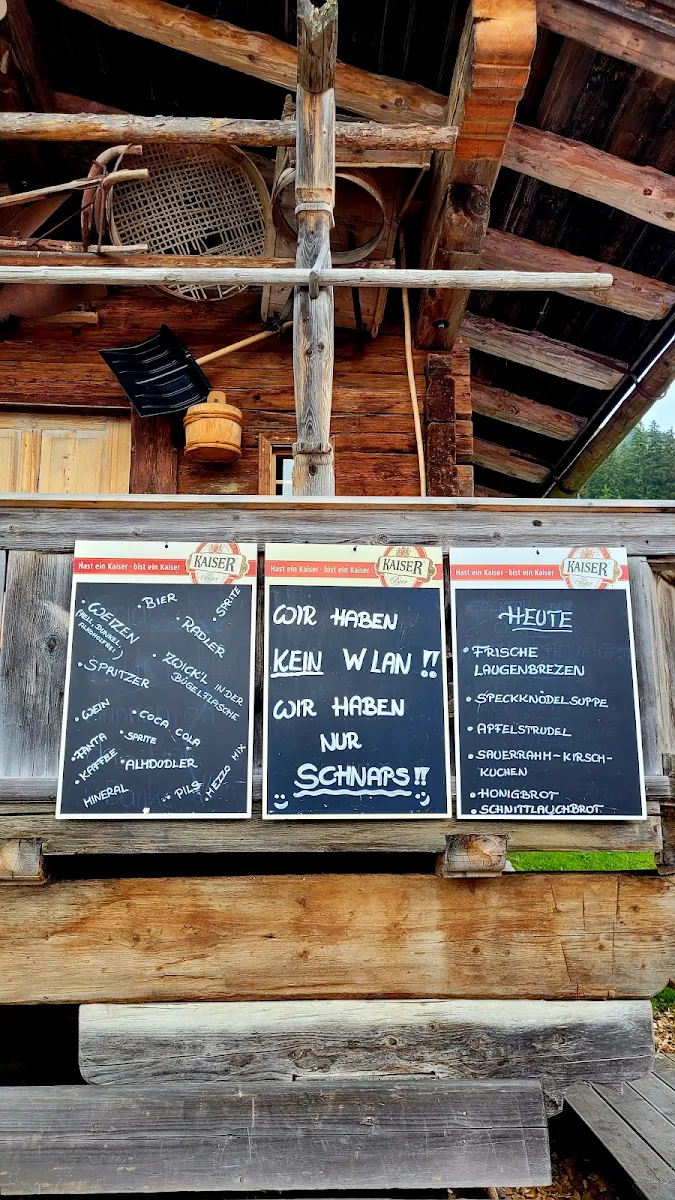 Hast ein Kaiser - bist ein Kaiser.
KAISER
Bier
• BIER
• SPRITE
• WEIZEN
(HELL, DUNKEL,
ALKOHOLFREI)
• RADLER
• SPRITZER
• ZWICKL IN DER
BÜGELFLASCHE
• WEIN
• COCA COLA
• FANTA
• SPRITE
• KAFFEE
• ALMDUDLER
MINERAL
• PILS
• MEZZO MIX
Hast ein Kaiser - bist ein Kaiser.
KAISER
Bier
WIR HABEN
KEIN WLAN !!
WIR HABEN
NUR
SCHNAPS !!
Hast ein Kaiser - bist ein Kaiser.
KAISER
Bier
HEUTE
• FRISCHE
LAUGENBREZEN
• SPECKKNÖDELSUPPE
• APFELSTRUDEL
• SAUERRAHM-KIRSCH-
KUCHEN
• HONIGBROT
• SCHNITTLAUCHBROT